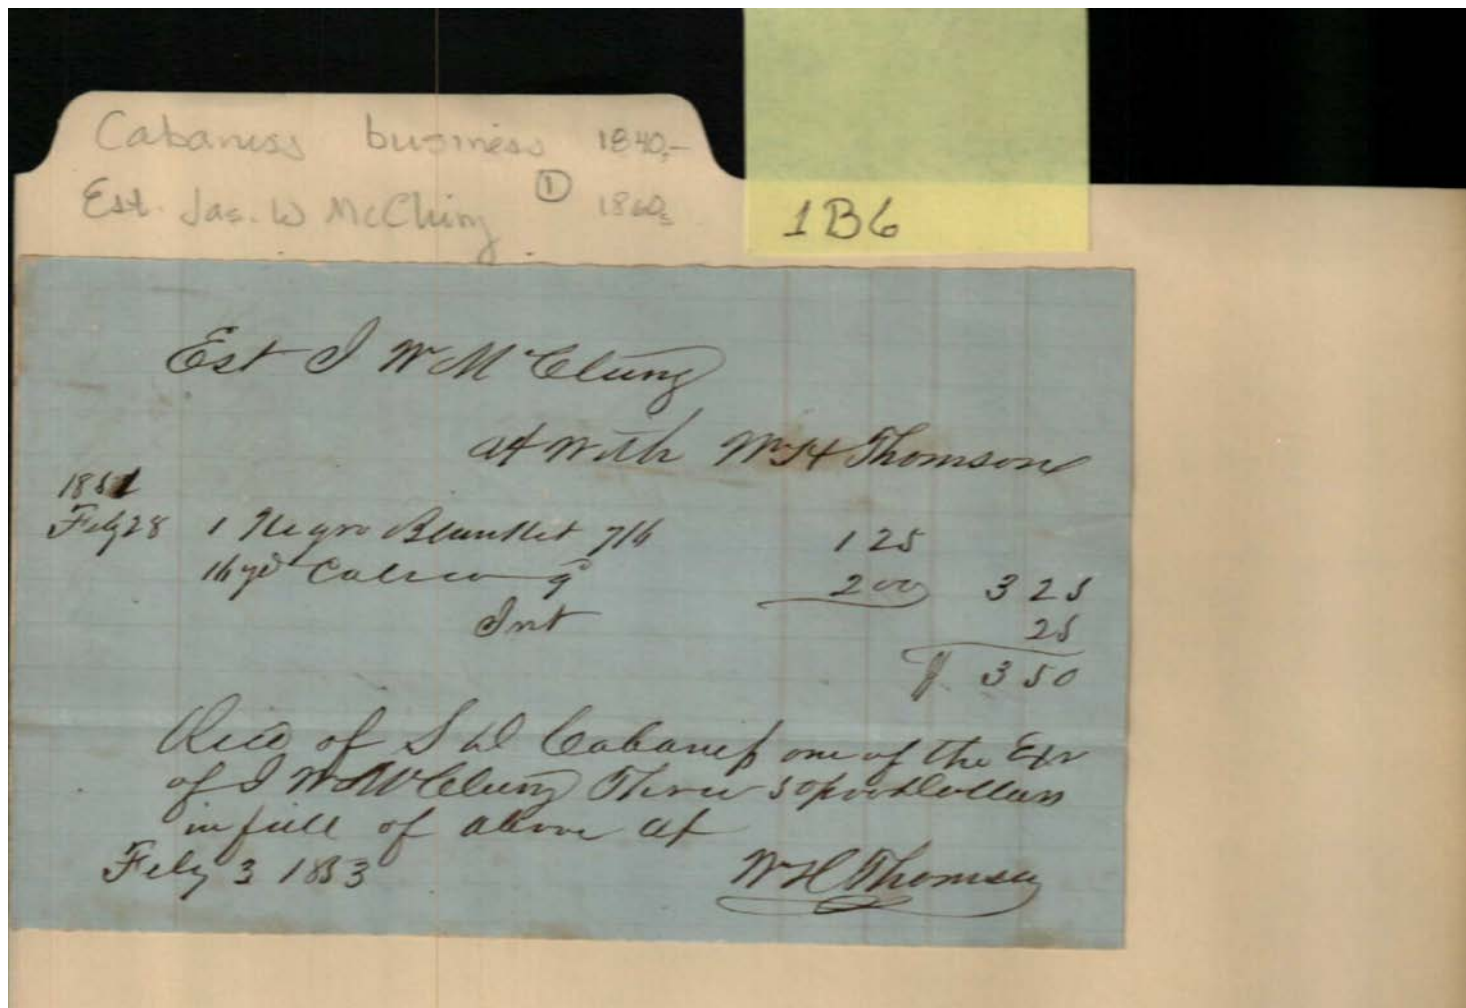 Cabaniss business 1840,-
Est. Jas. W McClung ① 1860s
1B6
Est J W McClung
a/c with Wm H Thomson
1851
Feby 28 1 Negro Blanket 7/6 1 25
16 yd Calico 2 00 3 25
Int 25
$ 3 50
Recd of S D Cabaniss one of the Exr
of J W McClung Three 50/100 Dollars
in full of above a/c
Feby 3 1853 Wm H Thomson